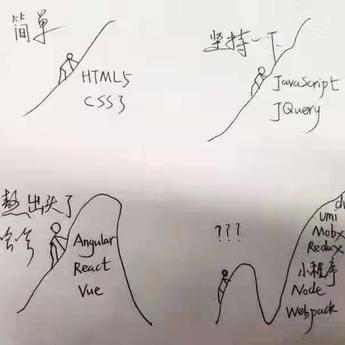 简单
HTML5
CSS3
坚持一下
JavaScript
JQuery
熬出头了
哈哈
Angular
React
Vue
???
umi
Mobx
Redux
小程序
Node
Webpack